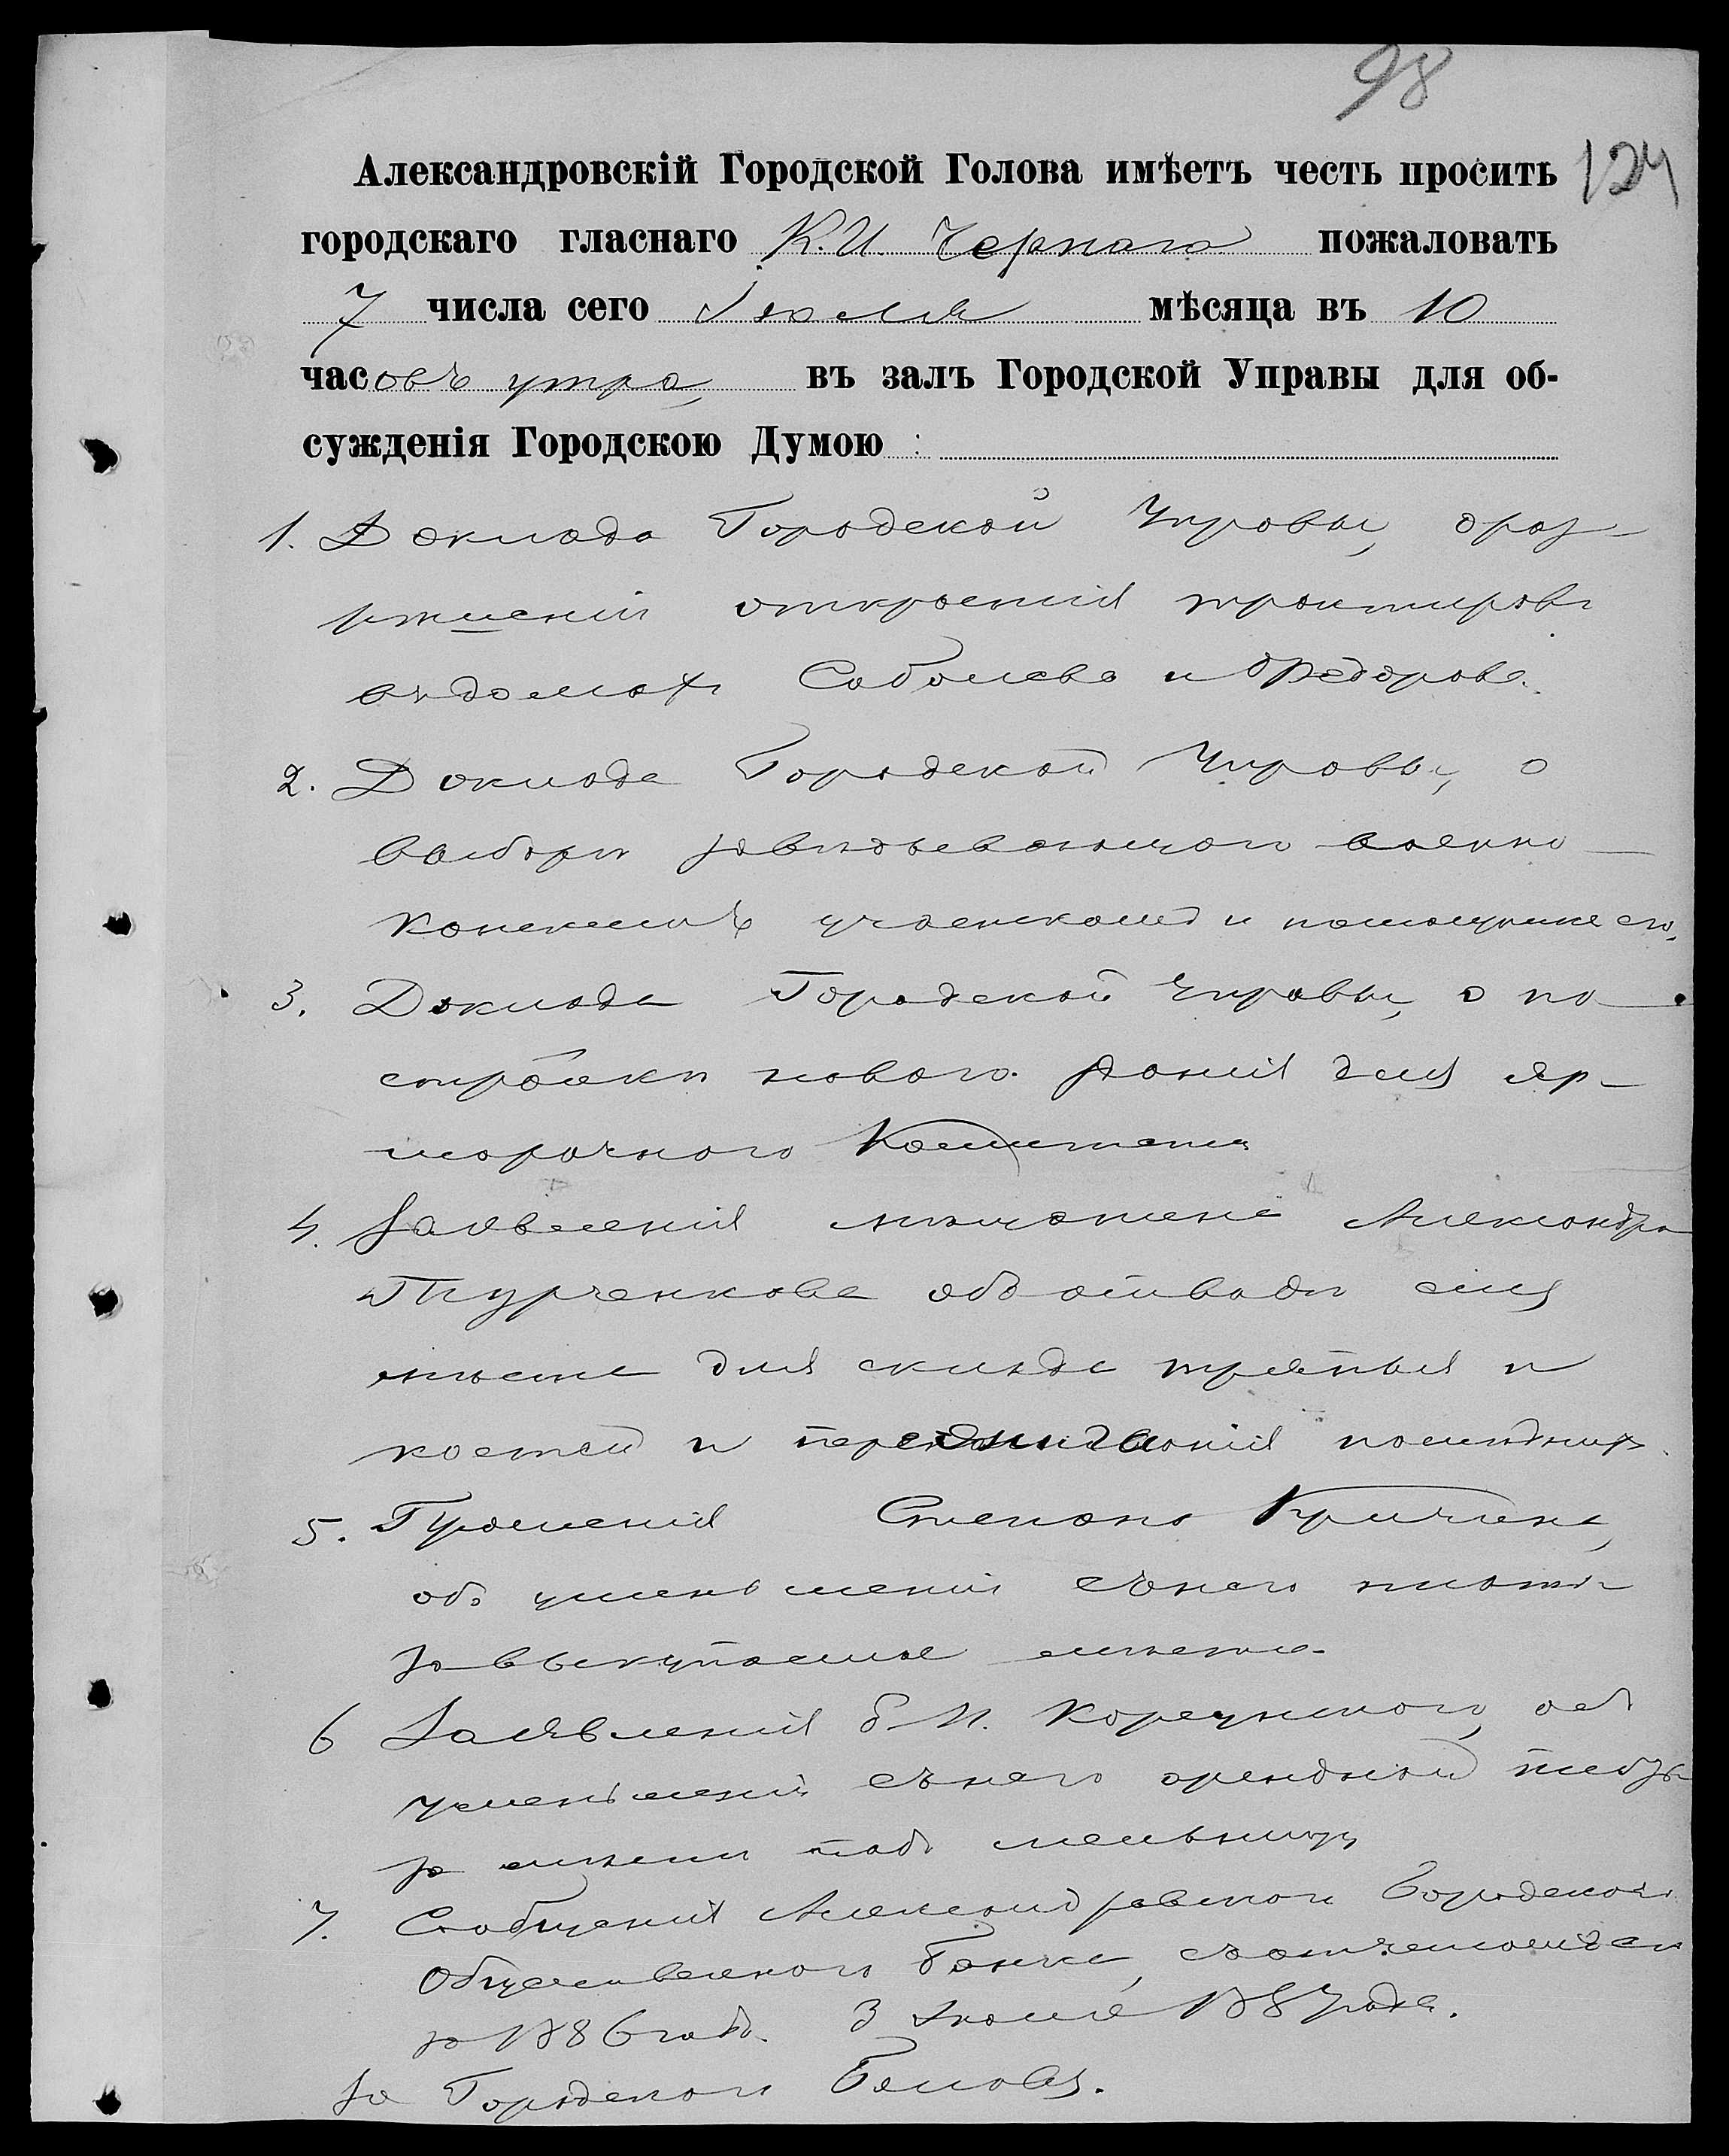 98
124
Александровскій Городской Голова имѣетъ честь просить
городскаго гласнаго К. И. Чернаго пожаловать
7 числа сего Іюля мѣсяца въ 10
часовъ утра, въ залъ Городской Управы для об-
сужденія Городскою Думою :
1. Доклада Городской Управы, о раз-
рѣшеніи открытія трактировъ
въ домахъ Соболева и Федорова.
2. Доклада Городской Управы, о
выборѣ завѣдывающаго военно-
конскимъ участкомъ и помощника его.
3. Доклада Городской Управы, о по-
стройкѣ новаго зданія для яр-
морочнаго Комитета
4. Заявленія мѣщанина Александра
Турченкова объ отводѣ ему
мѣста для склада тряпья и
костей и пережиганія послѣднихъ.
5. Прошенія Степана
объ уменьшеніи съ него платы
за выкупаемое мѣсто.
6 Заявленія И. об
уменьшеніи съ него арендной платы
за мѣсто подъ мельницу
7. Сообщенія Александровскаго Городского
Общественнаго Банка, съ отчетомъ его
за 1886 годъ. 3 Іюля 1887 года.
За Городского Голову.